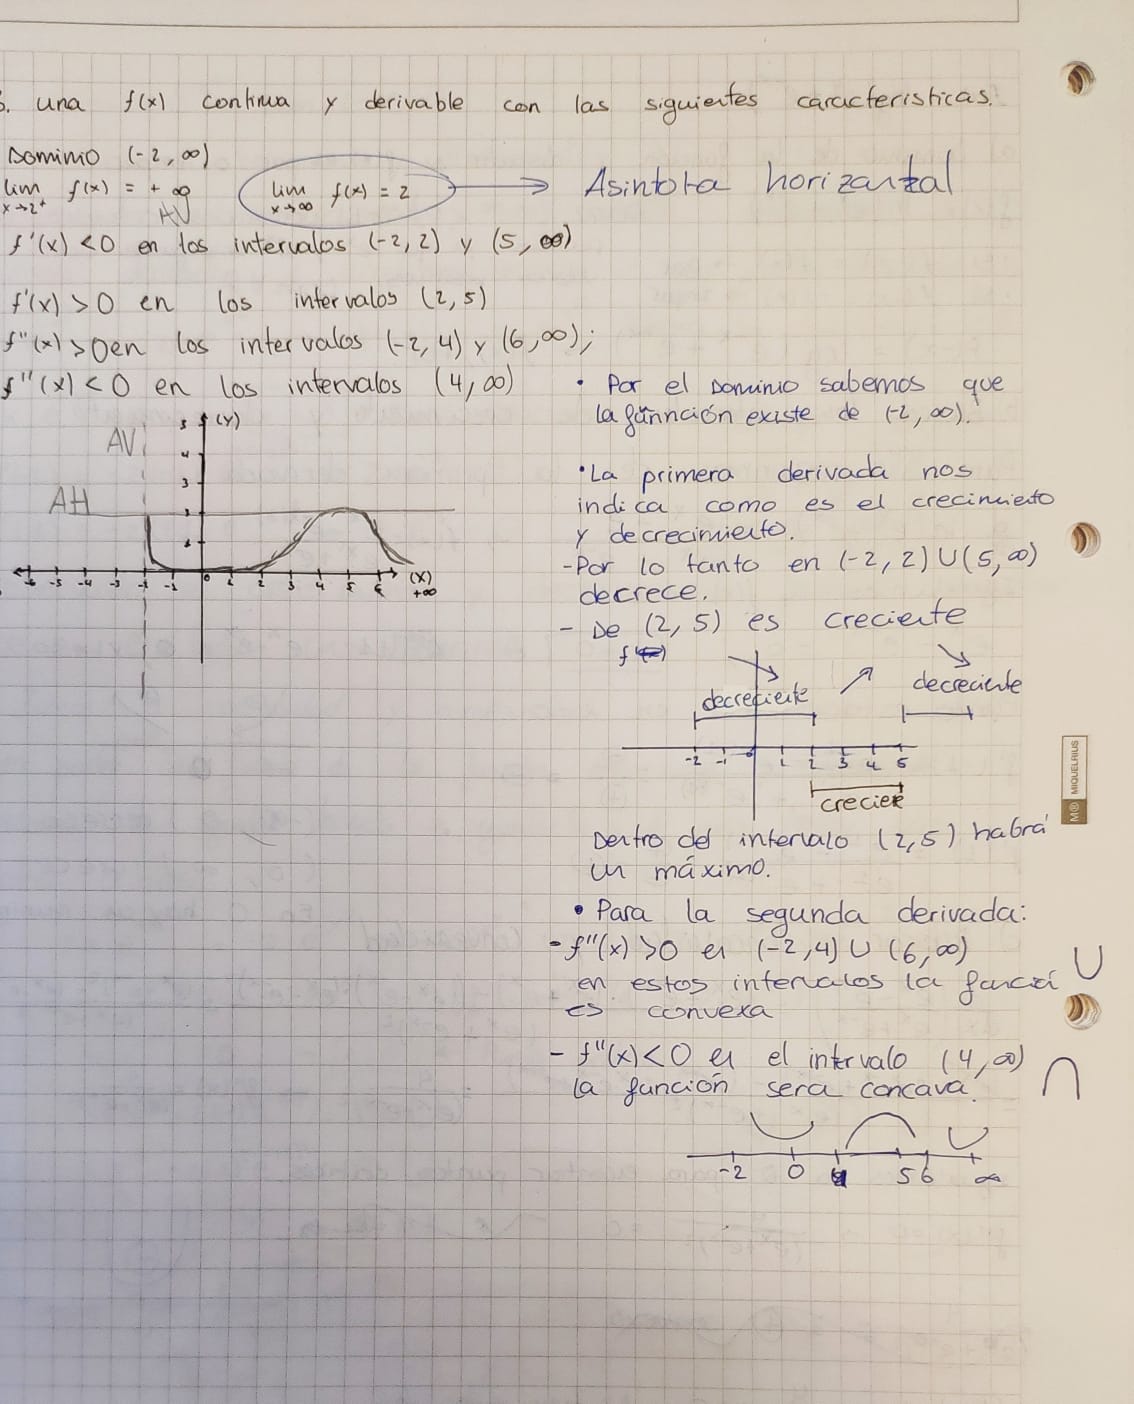 3. una f(x) continua y derivable con las siguientes caracteristicas.
Dominio (-2, ∞)
lim f(x) = + ∞
x→2⁺
AV
lim f(x) = 2
x→∞
Asintota horizantal
f'(x) <0 en los intervalos (-2, 2) y (5, ∞)
f'(x) >0 en los intervalos (2, 5)
f''(x) >0en los intervalos (-2, 4) y (6, ∞);
f''(x) <0 en los intervalos (4, ∞)
AV
AH
(Y)
5
4
3
3
1
-6 -5 -4 -3 -1 0 1 2 3 4 5 6 (X)
+∞
• Por el Dominio sabemos que
la funnción existe de (-2, ∞).
• La primera derivada nos
indica como es el crecimieto
y decrecimieto.
-Por lo tanto en (-2, 2) U (5, ∞)
decrece.
- De (2, 5) es creciete
decreciete
decreciete
-2 -1 0 1 2 3 4 5
creciete
Dentro del intervalo (2,5) habrá
un máximo.
• Para la segunda derivada:
- f''(x) >0 en (-2, 4) U (6, ∞)
en estos intervalos la función U
es convexa
- f''(x) <0 en el intervalo (4, ∞)
la función sera concava. ∩
-2 0 4 5 6 ∞
M® MIQUELRIUS